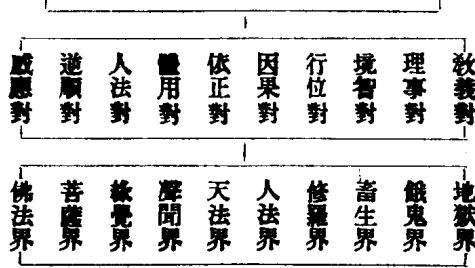 敎義對
理事對
境智對
行位對
因果對
依正對
體用對
人法對
逆順對
感應對
地獄界
餓鬼界
畜生界
修羅界
人法界
天法界
聲聞界
緣覺界
菩薩界
佛法界